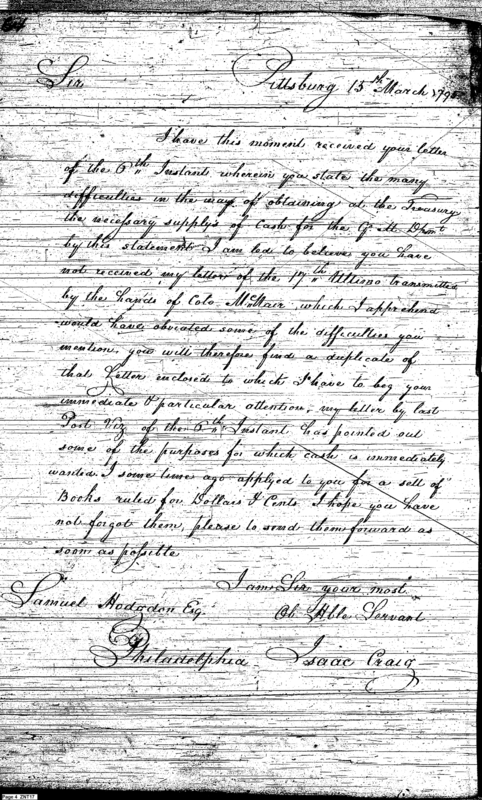 Sir Pittsburg 15th March 179
I have this moment received your letter
of the 6th Instant, wherein you state the many
difficulties in the way of obtaining at the Treasury
the necessary supply's of Cash for the Qr. M. Dpmt
by this statement I am led to believe you have
not received my letter of the 17th Ultimo transmitted
by the hands of Colo. McNair, which I apprehend
would have obviated some of the difficulties you
mention. you will therefore find a duplicate of
that Letter enclosed to which I have to beg your
immediate & particular attention, my letter by last
Post Viz of the 6th Instant has pointed out
some of the purposes for which cash is immediately
wanted. I some time ago applyed to you for a sett of
Books ruled for Dollars & Cents I hope you have
not forgot them, please to send them forward as
soon as possible
I am Sir your most
Samuel Hodgdon Esq. Ob. Hble Servant
Philadelphia Isaac Craig
Page 4 ZNT17